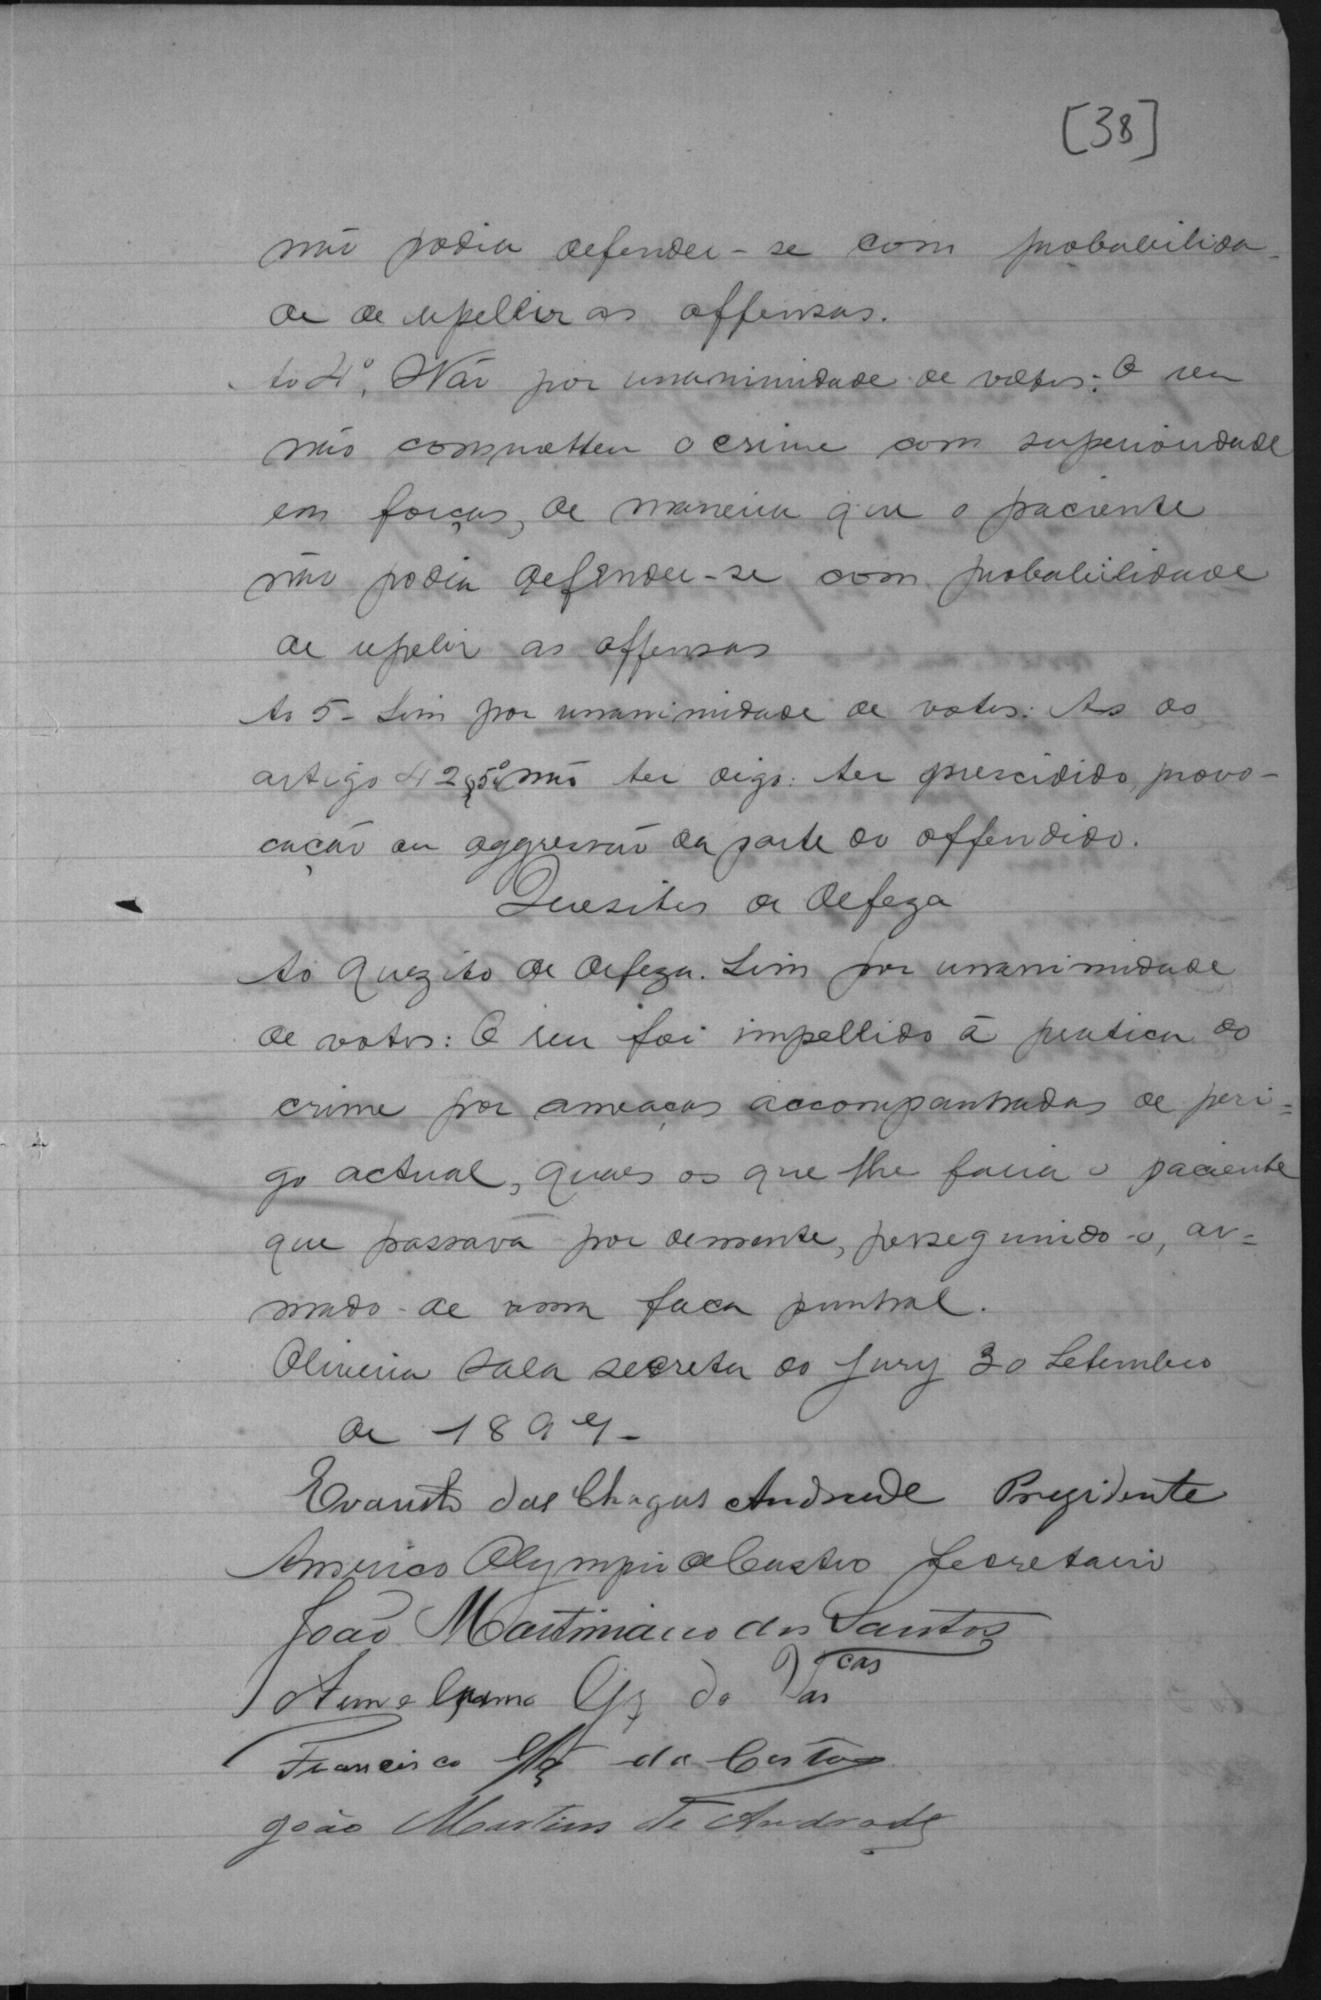 [38]
não podia defender-se com probabilida-
de de repellir as offensas.
Ao 4º, Não por unanimidade de votos: O reu
não commetteu o crime com superioridade
em forças, de maneira que o paciente
não podia defender-se com probabilidade
de repelir as offensas
Ao 5- Sim por unanimidade de votos: As do
artigo 42 § 5º não ter digo: ter prescidido, provo-
cação ou aggressão da parte do offendido.
Quesitos de Defeza
Ao quezito de defeza. Sim por unanimidade
de votos: O reu foi impellido á pratica do
crime por ameaças accompanhadas de peri=
go actual, quaes os que lhe fazia o paciente
que passava por demente, perseguindo-o, ar=
mado de uma faca punhal.
Oliveira Sala secreta do Jury 30 Setembro
de 1897-
Evaristo das Chagas Andrade Prezidente
Americo Olympio de Castro Secretario
João Martiniano dos Santos
Glz de Vas cos
Francisco da Costa
João Martins de Andrade